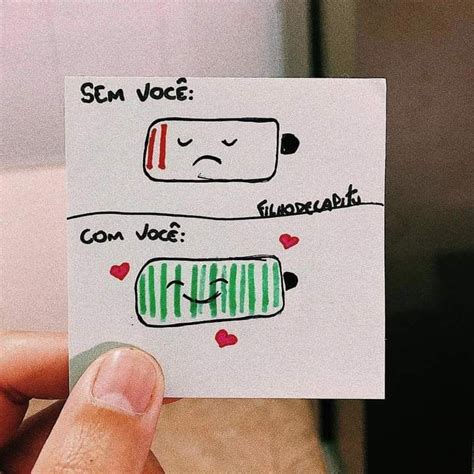 SEM VOCÊ:
FILHODECAPITU
COM VOCÊ: